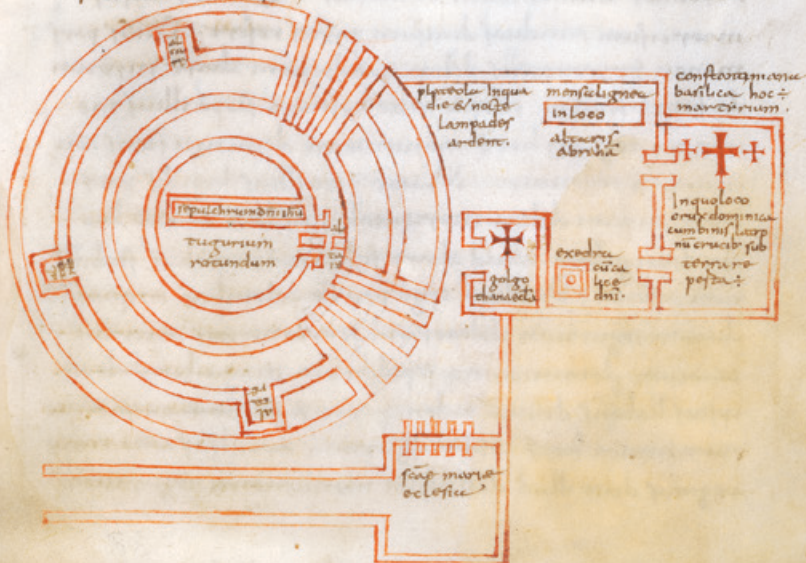 sepulchrum dni ihu
tugurium
rotundum
plateola Inqua
die & nocte
lampades
ardent.
mensa lignea
in loco
altaris
abraha
constantiniana
basilica hoc ÷
martirium.
Inquo loco
crux dominica
cum binis latro
nū crucib: sub
terra re
perta ÷
golgo
thana ecla
exedra
cū ca
lice
dni.
scae mariae
eclesia